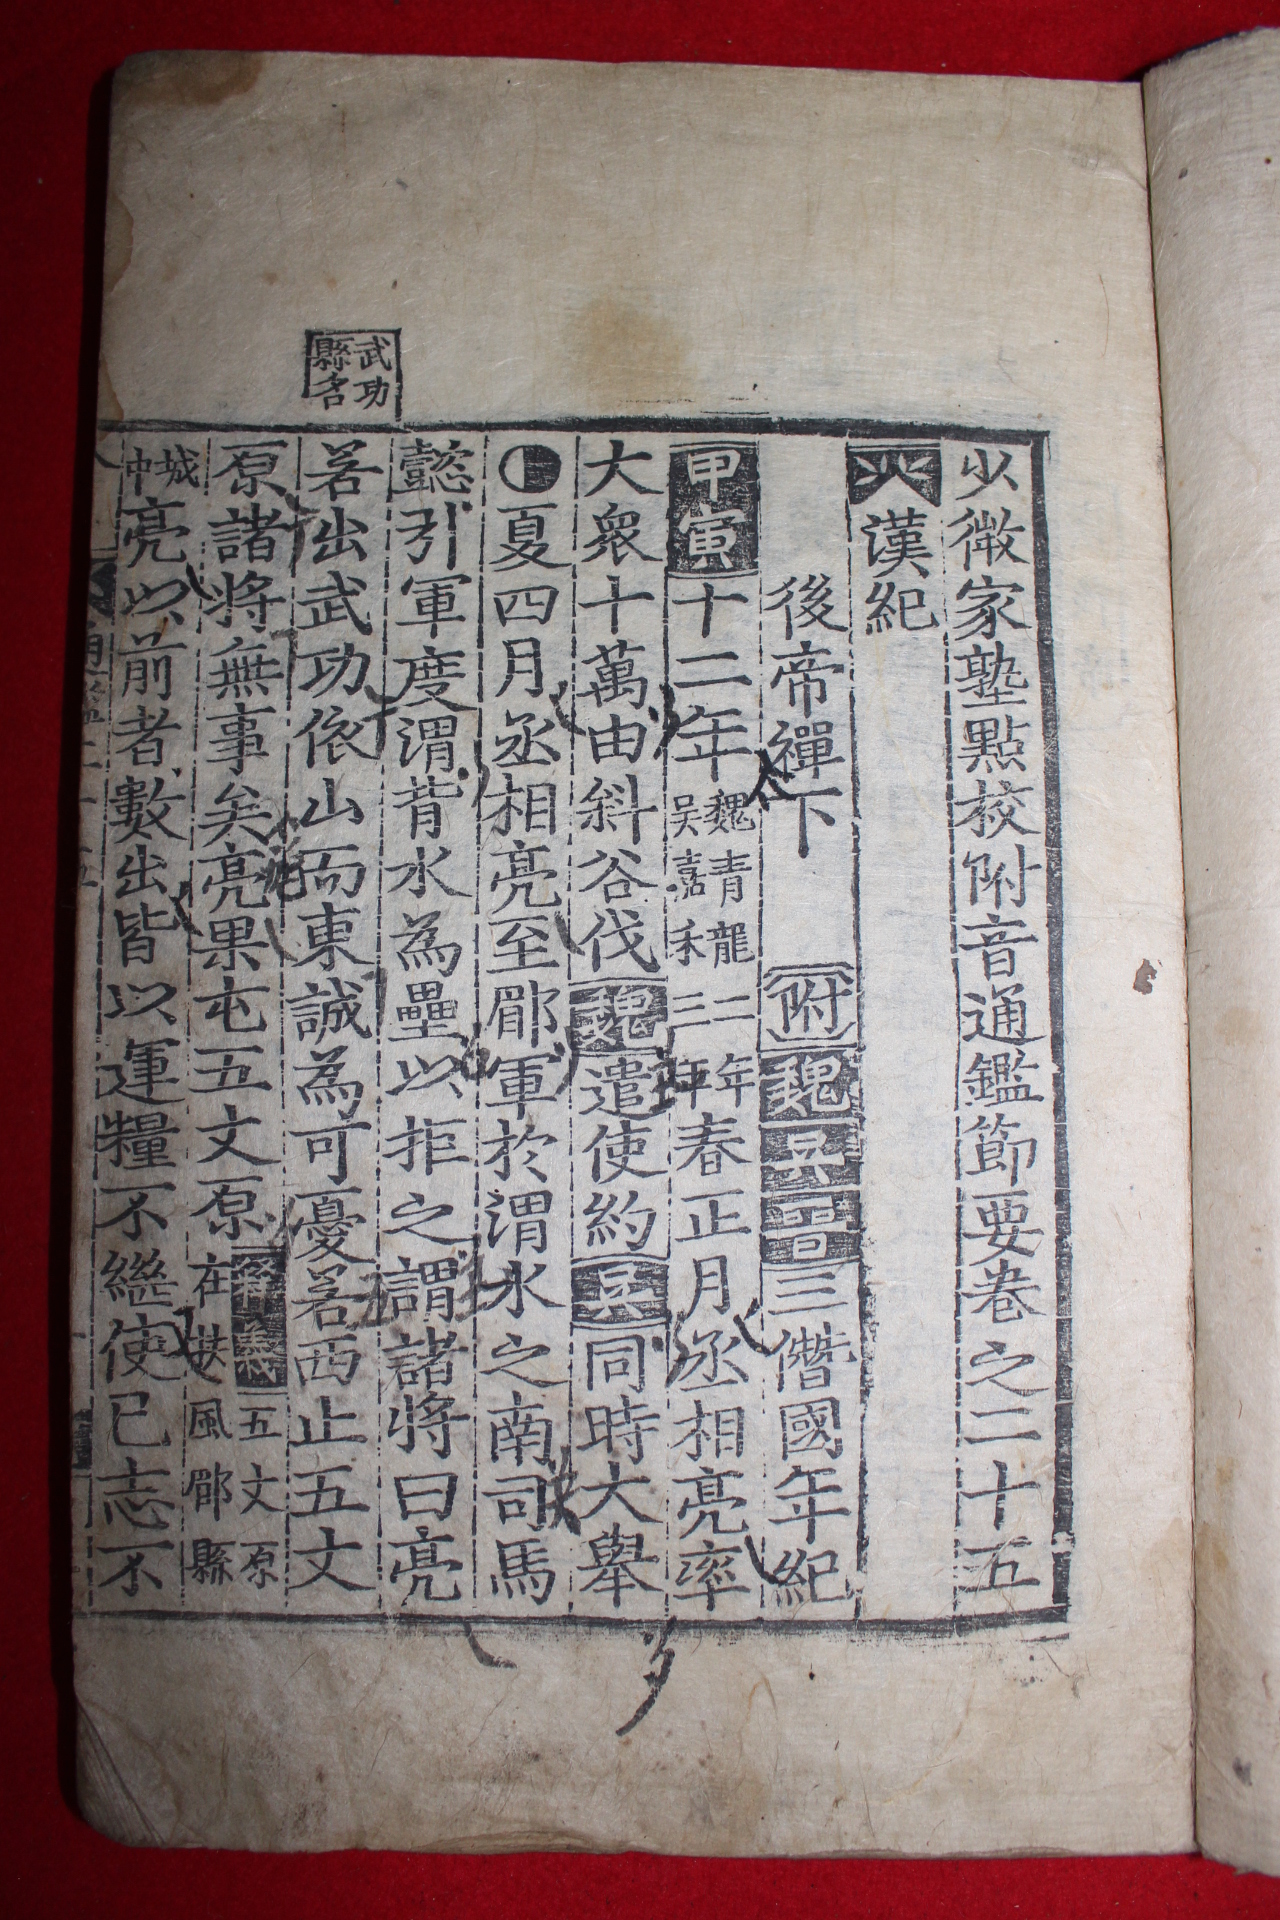 少微家塾點校附音通鑑節要卷之二十五
漢紀
後帝禪下 附 魏吳晉三僭國年紀
甲寅十二年 魏青龍二年 吳嘉禾三年 春正月丞相亮率
大衆十萬由斜谷伐魏遣使約吳同時大舉
夏四月丞相亮至郿軍於渭水之南司馬
懿引軍度渭背水為壘以拒之謂諸將曰亮
若出武功依山而東誠為可憂若西止五丈
武功縣名
原諸將無事矣亮果屯五丈原 五丈原在 風郿縣
城中亮以前者數出皆以運糧不繼使已志不